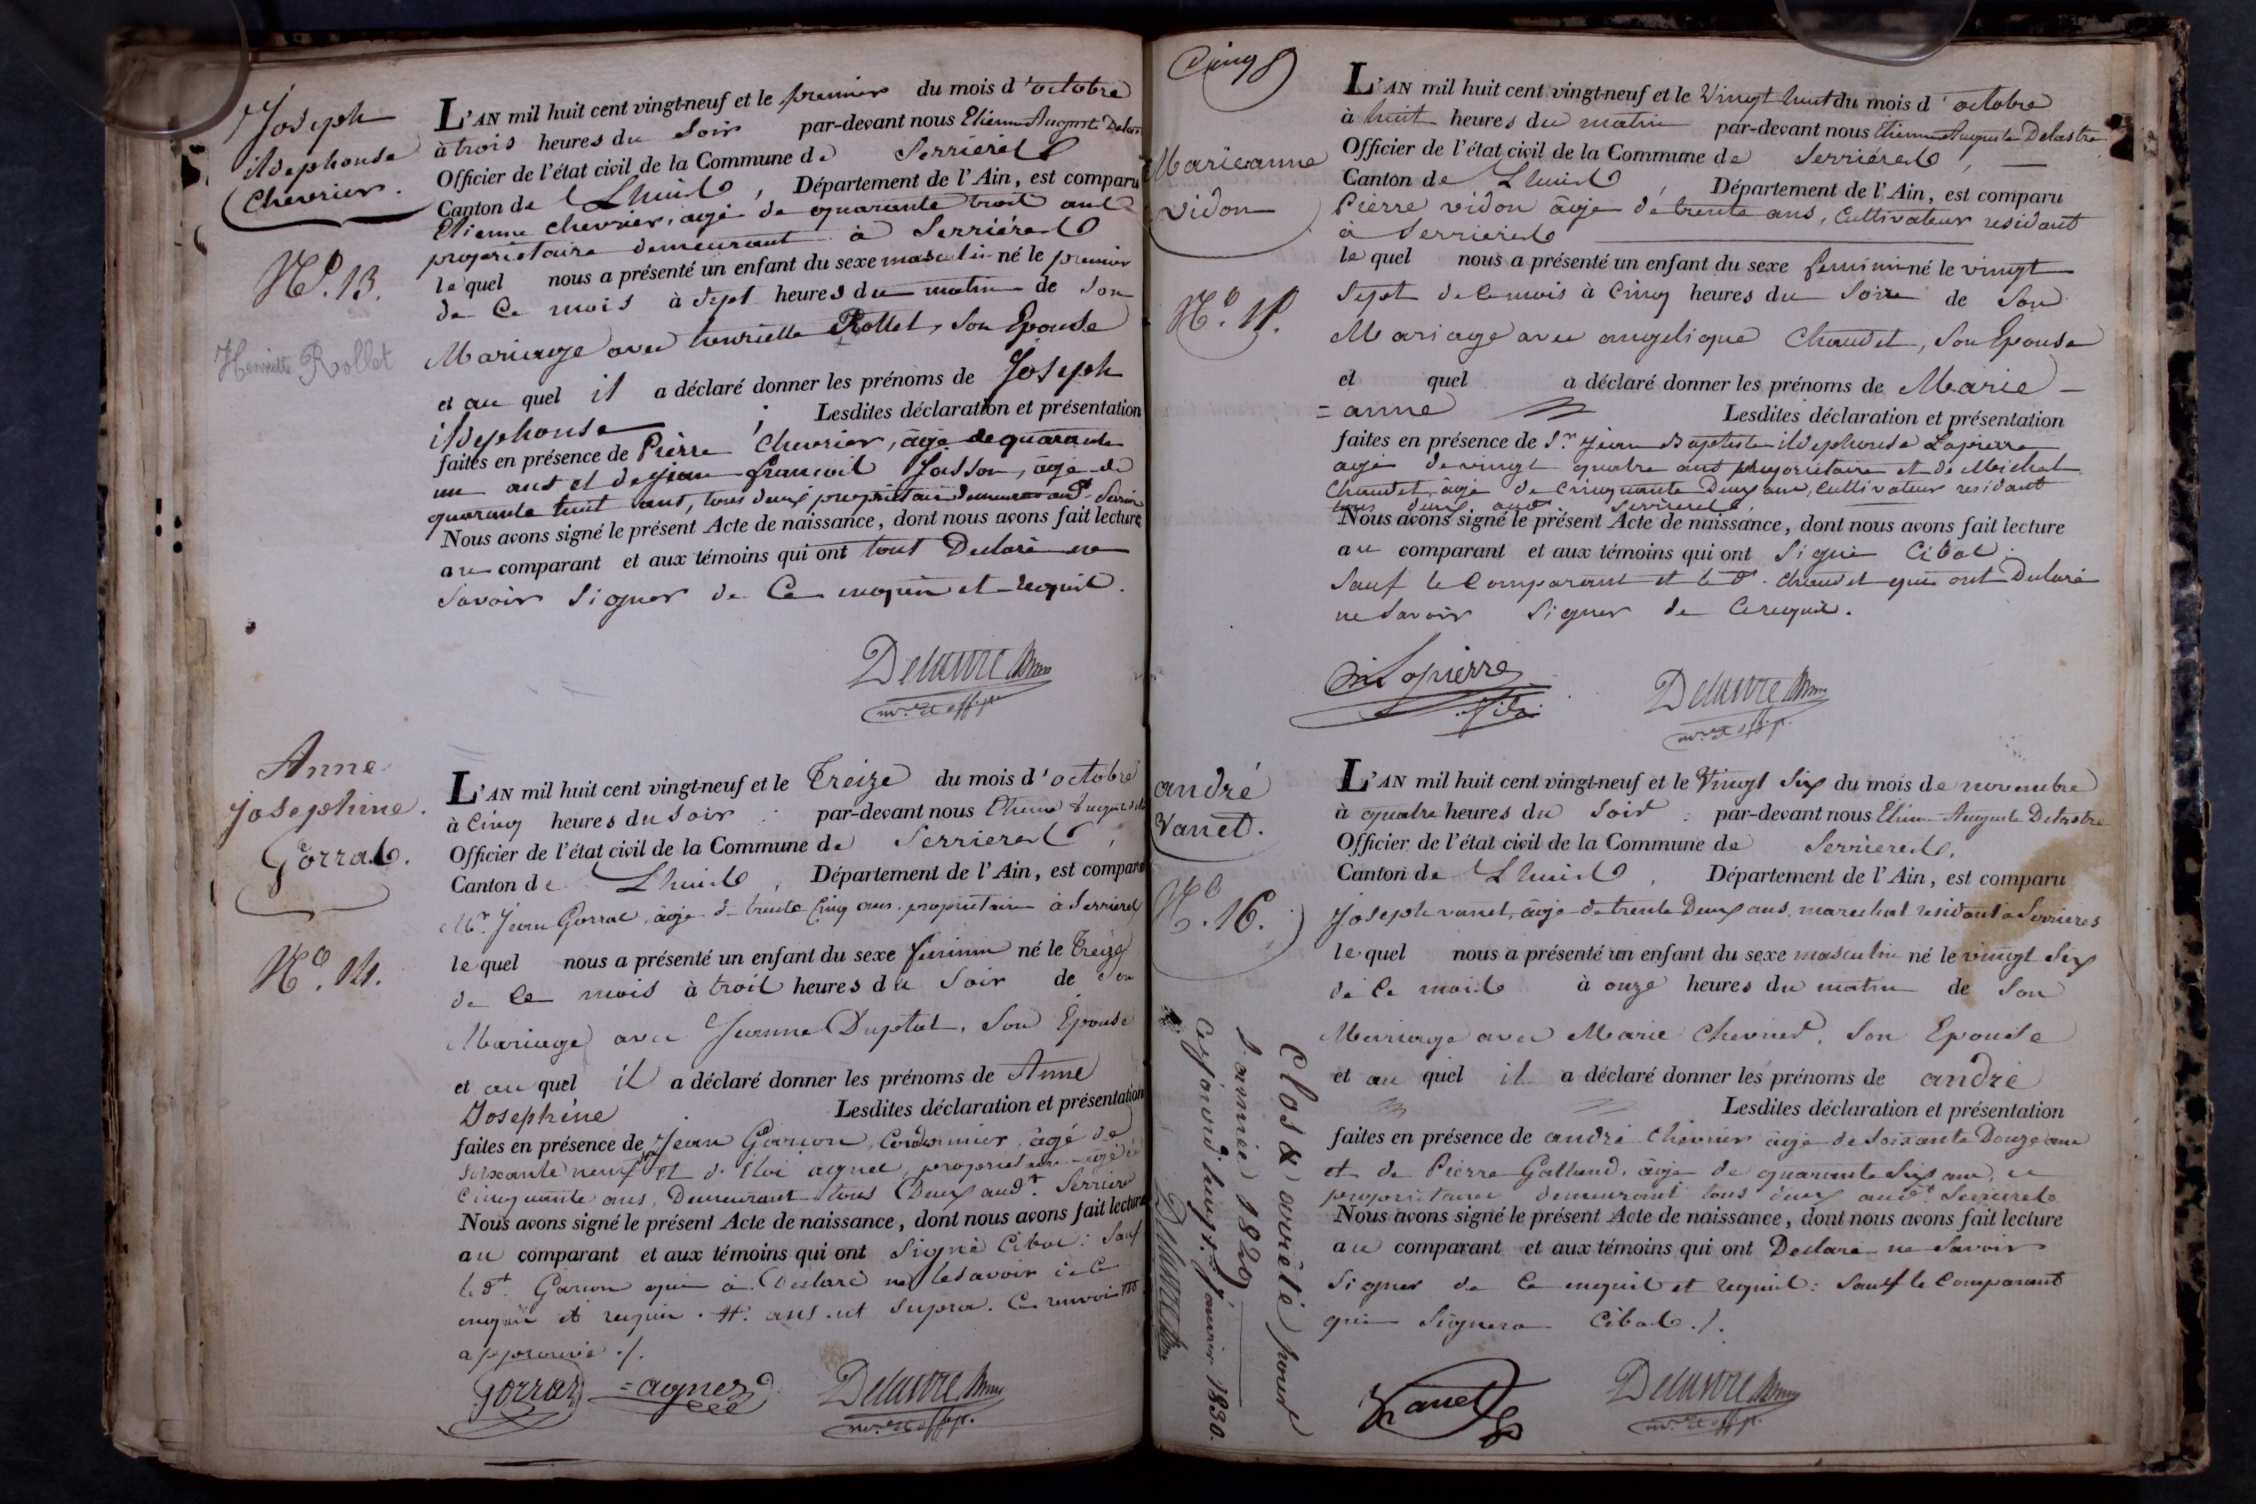 Joseph
ildephonse
Chevrier.
N.º 13.
Henriette Rollet
L'AN mil huit cent vingt-neuf et le premier du mois d'octobre
à trois heures du Soir par-devant nous Etienne Auguste
Officier de l'état civil de la Commune de Serrieres
Canton de Lhuis, Département de l'Ain, est comparu
Etienne Chevrier, agé de quarante trois ans
proprietaire demeurant à Serriéres
le quel nous a présenté un enfant du sexe masculin né le premier
de Ce mois à Sept heures du matin de Son
Mariage avec henriette Rollet, Son Epouse
et au quel il a déclaré donner les prénoms de Joseph
ildephonse, Lesdites déclaration et présentation
faites en présence de Pierre Chevrier, âgé de quarante
un ans et de jean françois Jasson, âgé de
quarante huit ans, tous deux proprietaires
Nous avons signé le présent Acte de naissance, dont nous avons fait lecture
au comparant et aux témoins qui ont tous Declaré ne
Savoir Signer de Ce enquis et requis.
Delastre
Anne
josephine.
Gorras.
N.º 14.
L'AN mil huit cent vingt-neuf et le Treize du mois d'octobre
à Cinq heures du Soir par-devant nous Etienne Auguste
Officier de l'état civil de la Commune de Serrieres
Canton de Lhuis, Département de l'Ain, est comparu
Mr. Jean Gorras, âgé de trente Cinq ans. proprietaire à Serrieres
le quel nous a présenté un enfant du sexe feminin né le Treize
de Ce mois à trois heures du Soir de Son
Mariage avec Jeanne Duplat, Son Epouse
et au quel il a déclaré donner les prénoms de Anne
Josephine Lesdites déclaration et présentation
faites en présence de Jean Garion, Cordonnier âgé de
Soixante neuf et d'Eloi agnel, proprietaire âgé de
Cinquante ans, Demeurant tous Deux aud.t Serriere
Nous avons signé le présent Acte de naissance, dont nous avons fait lecture
au comparant et aux témoins qui ont Signé Cibas: Sauf
le d.t Garion qui a Declaré ne le Savoir de Ce
enquis et requis. #. ans. ut Supra. Ce renvoi
approuvé ./.
Gorras =agnes Delastre
Cinq
Marieanne
vidon
N.º 15.
L'AN mil huit cent vingt-neuf et le Vingt huit du mois d'octobre
à huit heures du matin par-devant nous Etienne Auguste Delastre
Officier de l'état civil de la Commune de Serriéres,
Canton de Lhuis, Département de l'Ain, est comparu
Pierre vidon âgé de trente ans, Cultivateur residant
à Serrieres
le quel nous a présenté un enfant du sexe feminin né le vingt
Sept de Ce mois à Cinq heures du Soir de Son
Mariage avec angelique Chaudet, Son Epouse
et quel a déclaré donner les prénoms de Marie-
=anne Lesdites déclaration et présentation
faites en présence de S.r Jean Baptiste ildephonse Lapierre
agé de vingt quatre ans proprietaire et de Michel
Chaudet, âgé de Cinquante Deux ans, Cultivateur residant
tous deux aud. Serrieres,
Nous avons signé le présent Acte de naissance, dont nous avons fait lecture
au comparant et aux témoins qui ont Signé Cibas.
Sauf le Comparant et le d. Chaudet qui ont Declaré
ne Savoir Signer de Ce requis.
Lapierre fils Delastre
andré
Vanet.
N.º 16.
L'AN mil huit cent vingt-neuf et le Vingt Six du mois de novembre
à quatre heures du Soir par-devant nous Etienne Auguste Delastre
Officier de l'état civil de la Commune de Serrieres,
Canton de Lhuis, Département de l'Ain, est comparu
Joseph vanet, âgé de trente Deux ans, marechal residant a Serrieres
le quel nous a présenté un enfant du sexe masculin né le vingt Six
de Ce mois à onze heures du matin de Son
Mariage avec Marie Chevrier, Son Epouse
et au quel il a déclaré donner les prénoms de andré
Lesdites déclaration et présentation
faites en présence de andré Chevrier âgé de Soixante Douze ans
et de Pierre Galland, âgé de quarante Six ans,
proprietaires demeurant tous deux aud.t Serrieres
Nous avons signé le présent Acte de naissance, dont nous avons fait lecture
au comparant et aux témoins qui ont Declaré ne Savoir
Signer de Ce enquis et requis: Sauf le Comparant
qui Signera Cibas./.
Vanet Delastre
Clos & arrêté pour
l'année 1829
Cejourd'huy 1.er janvier 1830.
Delastre